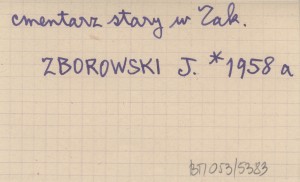 cmentarz stary w Zak.
ZBOROWSKI J. *1958 a
BTI 053/5383